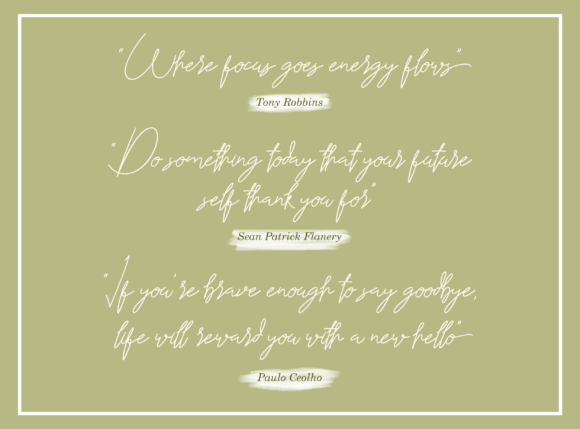 "Where focus goes energy flows"
Tony Robbins
"Do something today that your future
self thank you for"
Sean Patrick Flanery
"If you're brave enough to say goodbye,
life will reward you with a new hello"
Paulo Ceolho